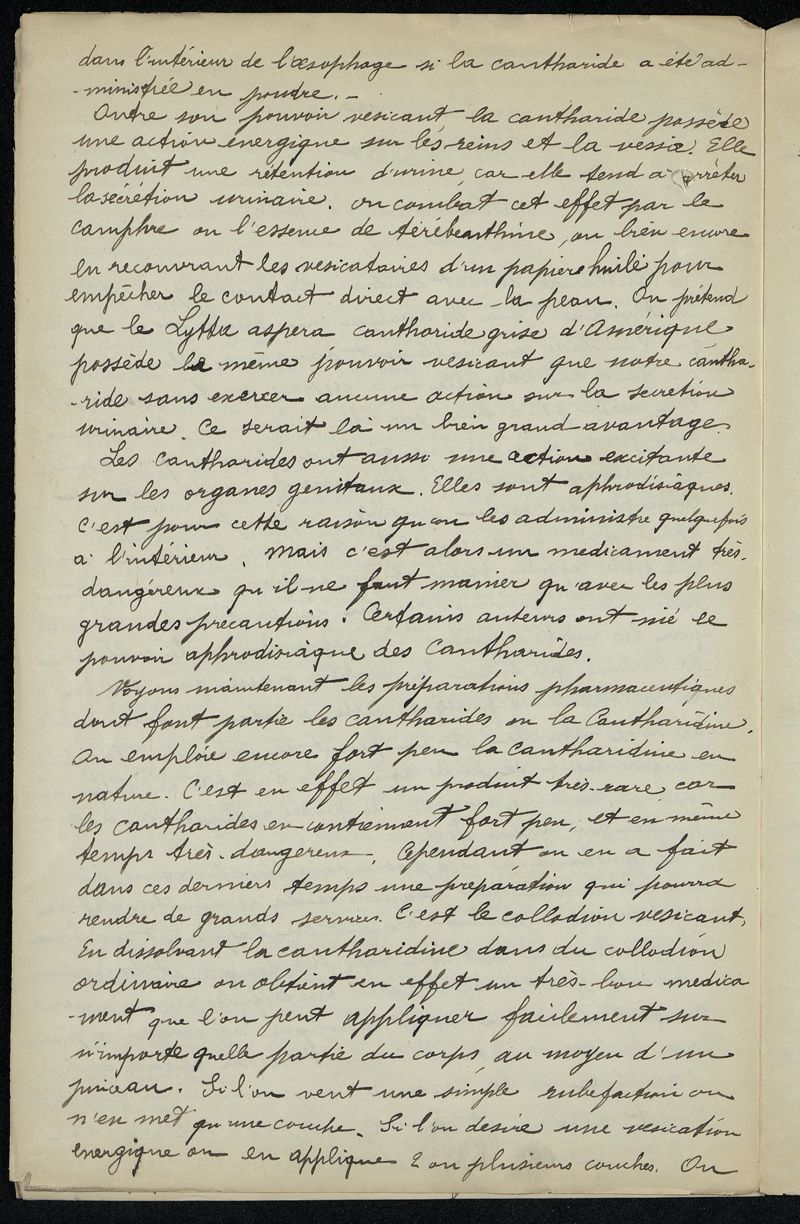 dans l'intérieur de l'œsophage si la cantharide a été ad-
-ministrée en poudre.-
Outre son pouvoir vesicant la cantharide possède
une action energique sur les reins et la vessie. Elle
produit une rétention d'urine, car elle tend a arrêter
la sécrétion urinaire. on combat cet effet par le
camphre ou l'essence de térébenthine, ou bien encore
en recouvrant les vesicatoires d'un papier huilé pour
empêcher le contact direct avec la peau. On prétend
que le Lytta aspera cantharide grise d'Amérique
possède le même pouvoir vesicant que notre cantha-
-ride sans exercer aucune action sur la secretion
urinaire. Ce serait là un bien grand avantage.
Les Cantharides ont aussi une action excitante
sur les organes genitaux. Elles sont aphrodisiaques.
C'est pour cette raison qu'on les administre quelquefois
a l'intérieur. Mais c'est alors un medicament très-
dangéreux qu'il ne faut manier qu'avec les plus
grandes precautions. Certains auteurs ont nié le
pouvoir aphrodisiaque des Cantharides.
Voyons maintenant les préparations pharmaceutiques
dont font partie les cantharides ou la Cantharidine.
On emploie encore fort peu la cantharidine en
nature. C'est en effet un produit très-rare car
les cantharides en contiennent fort peu, et en même
temps très-dangereux. Cependant on en a fait
dans ces derniers temps une préparation qui pourra
rendre de grands services. C'est le collodion vesicant.
En dissolvant la cantharidine dans du collodion
ordinaire on obtient en effet un très-bon medica
-ment que l'on peut appliquer facilement sur
n'importe quelle partie du corps, au moyen d'un
pinceau. Si l'on veut une simple rubefaction on
n'en met qu'une couche. Si l'on desire une vesication
energique on en applique 2 ou plusieurs couches. On